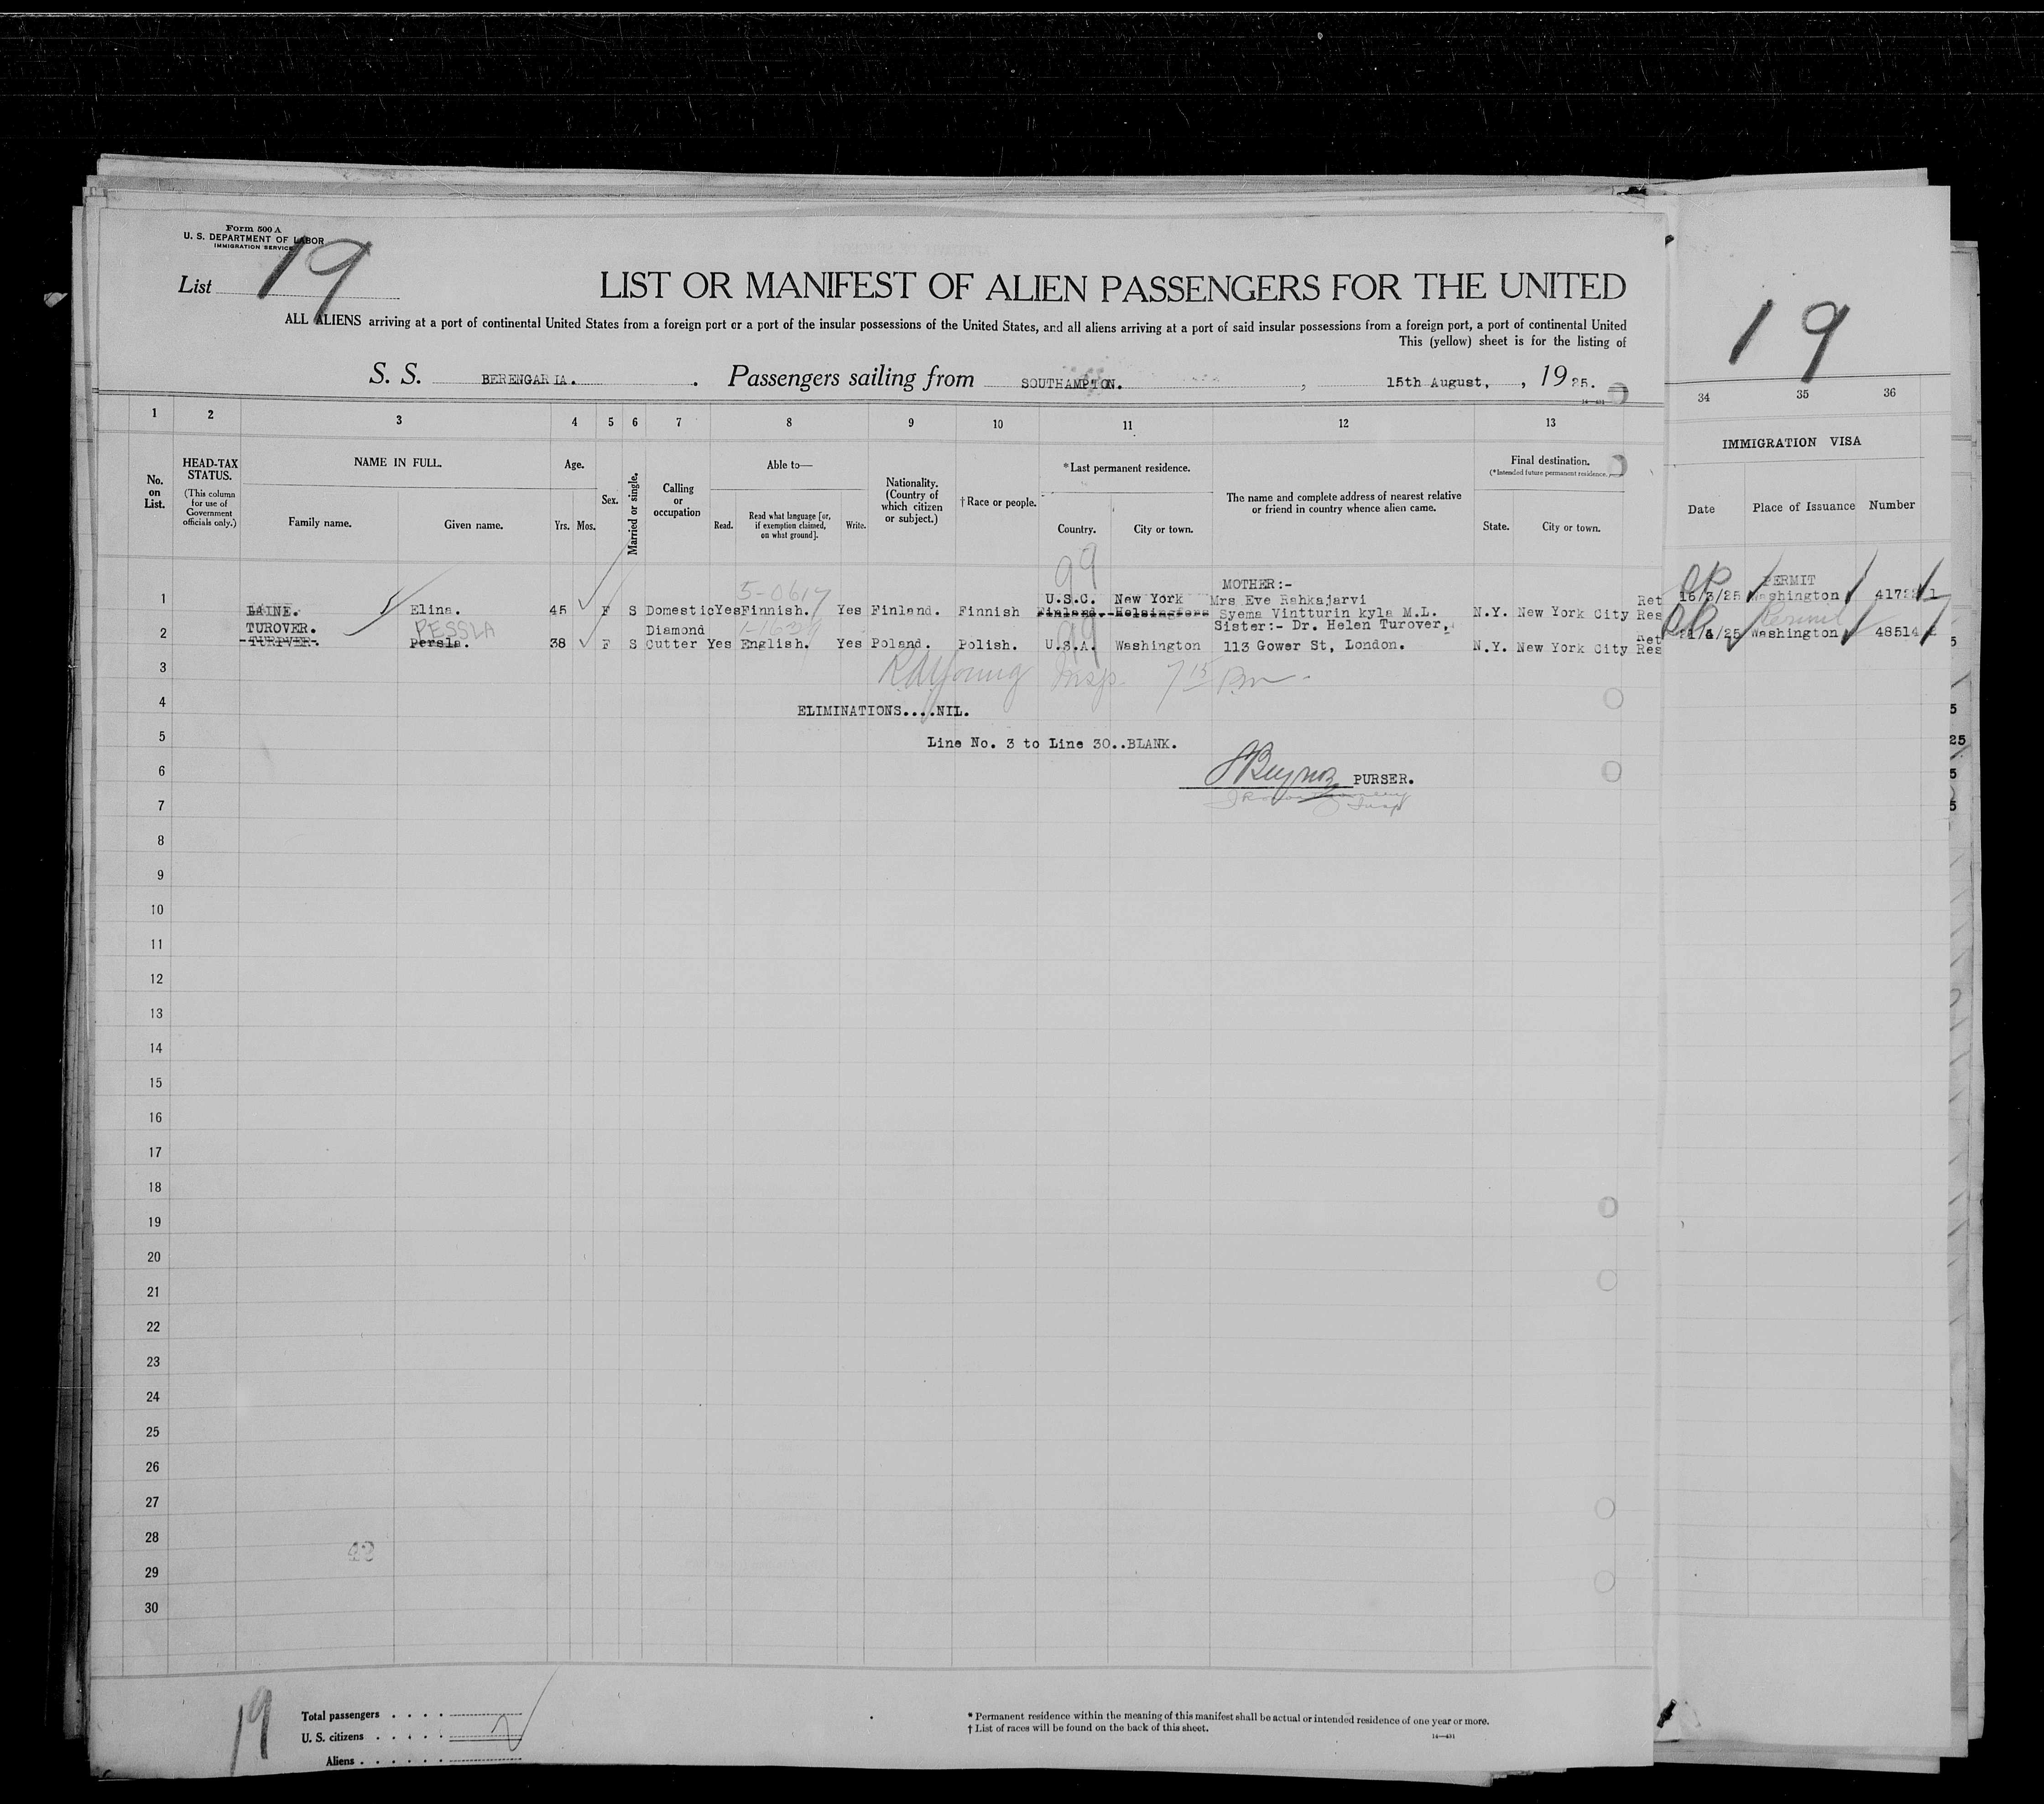 Form 500 A
U. S. DEPARTMENT OF LABOR
IMMIGRATION SERVICE
List 19
LIST OR MANIFEST OF ALIEN PASSENGERS FOR THE UNITED
ALL ALIENS arriving at a port of continental United States from a foreign port or a port of the insular possessions of the United States, and all aliens arriving at a port of said insular possessions from a foreign port, a port of continental United
This (yellow) sheet is for the listing of
S. S. BERENGARIA. Passengers sailing from SOUTHAMPTON. , 15th August, , 1925.
19
1 2 3 4 5 6 7 8 9 10 11 12 13
34 35 36
No. on List.
HEAD-TAX STATUS.
(This column for use of Government officials only.)
NAME IN FULL.
Family name. Given name.
Age.
Yrs. Mos.
Sex.
Married or single.
Calling or occupation
Able to—
Read. Read what language [or, if exemption claimed, on what ground]. Write.
Nationality. (Country of which citizen or subject.)
† Race or people.
*Last permanent residence.
Country. City or town.
The name and complete address of nearest relative or friend in country whence alien came.
Final destination.
(*Intended future permanent residence.)
State. City or town.
IMMIGRATION VISA
Date Place of Issuance Number
5-0617 99 MOTHER:- PERMIT
1 U.S.C. New York Mrs Eve Rahkajarvi Ret 16/3/25 Washington
LAINE. Elina. 45 F S Domestic Yes Finnish. Yes Finland. Finnish Finland. Helsingfors Syema Vintturin kyla M.L. N.Y. New York City Res
2 TUROVER. PESSLA Diamond 99 Sister:- Dr. Helen Turover, Ret Permit Washington 48514
TURPVER. Persla. 38 F S Cutter Yes English. Yes Poland. Polish. U.S.A. Washington 113 Gower St, London. N.Y. New York City Res
3 Young Insp. 7 15 Pm
4 ELIMINATIONS....NIL.
5 Line No. 3 to Line 30..BLANK.
6 PURSER.
7 Insp
8
9
10
11
12
13
14
15
16
17
18
19
20
21
22
23
24
25
26
27
28
43
29
30
19
Total passengers
U. S. citizens
Aliens
* Permanent residence within the meaning of this manifest shall be actual or intended residence of one year or more.
† List of races will be found on the back of this sheet.
14—431